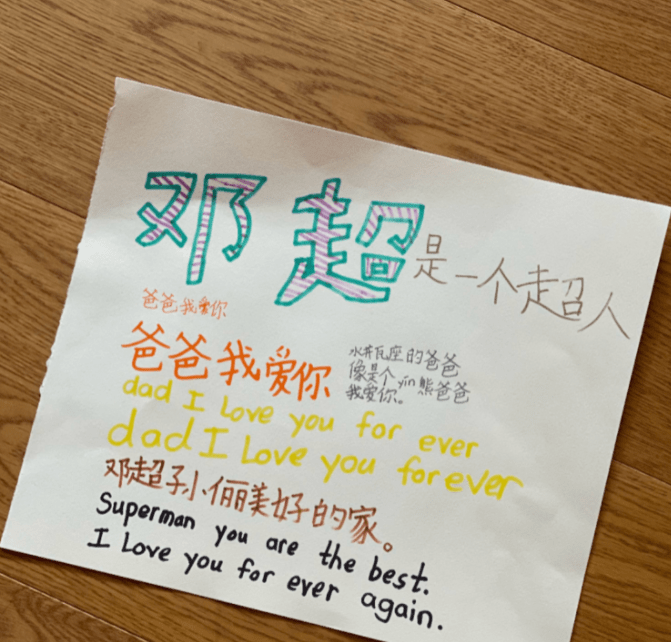 邓超是一个超人
爸爸我爱你
爸爸我爱你
水井瓦座的爸爸
像是个yin熊爸爸
我爱你。
dad I Love you for ever
dad I Love you forever
邓超孙俪美好的家。
Superman you are the best.
I Love you for ever again.